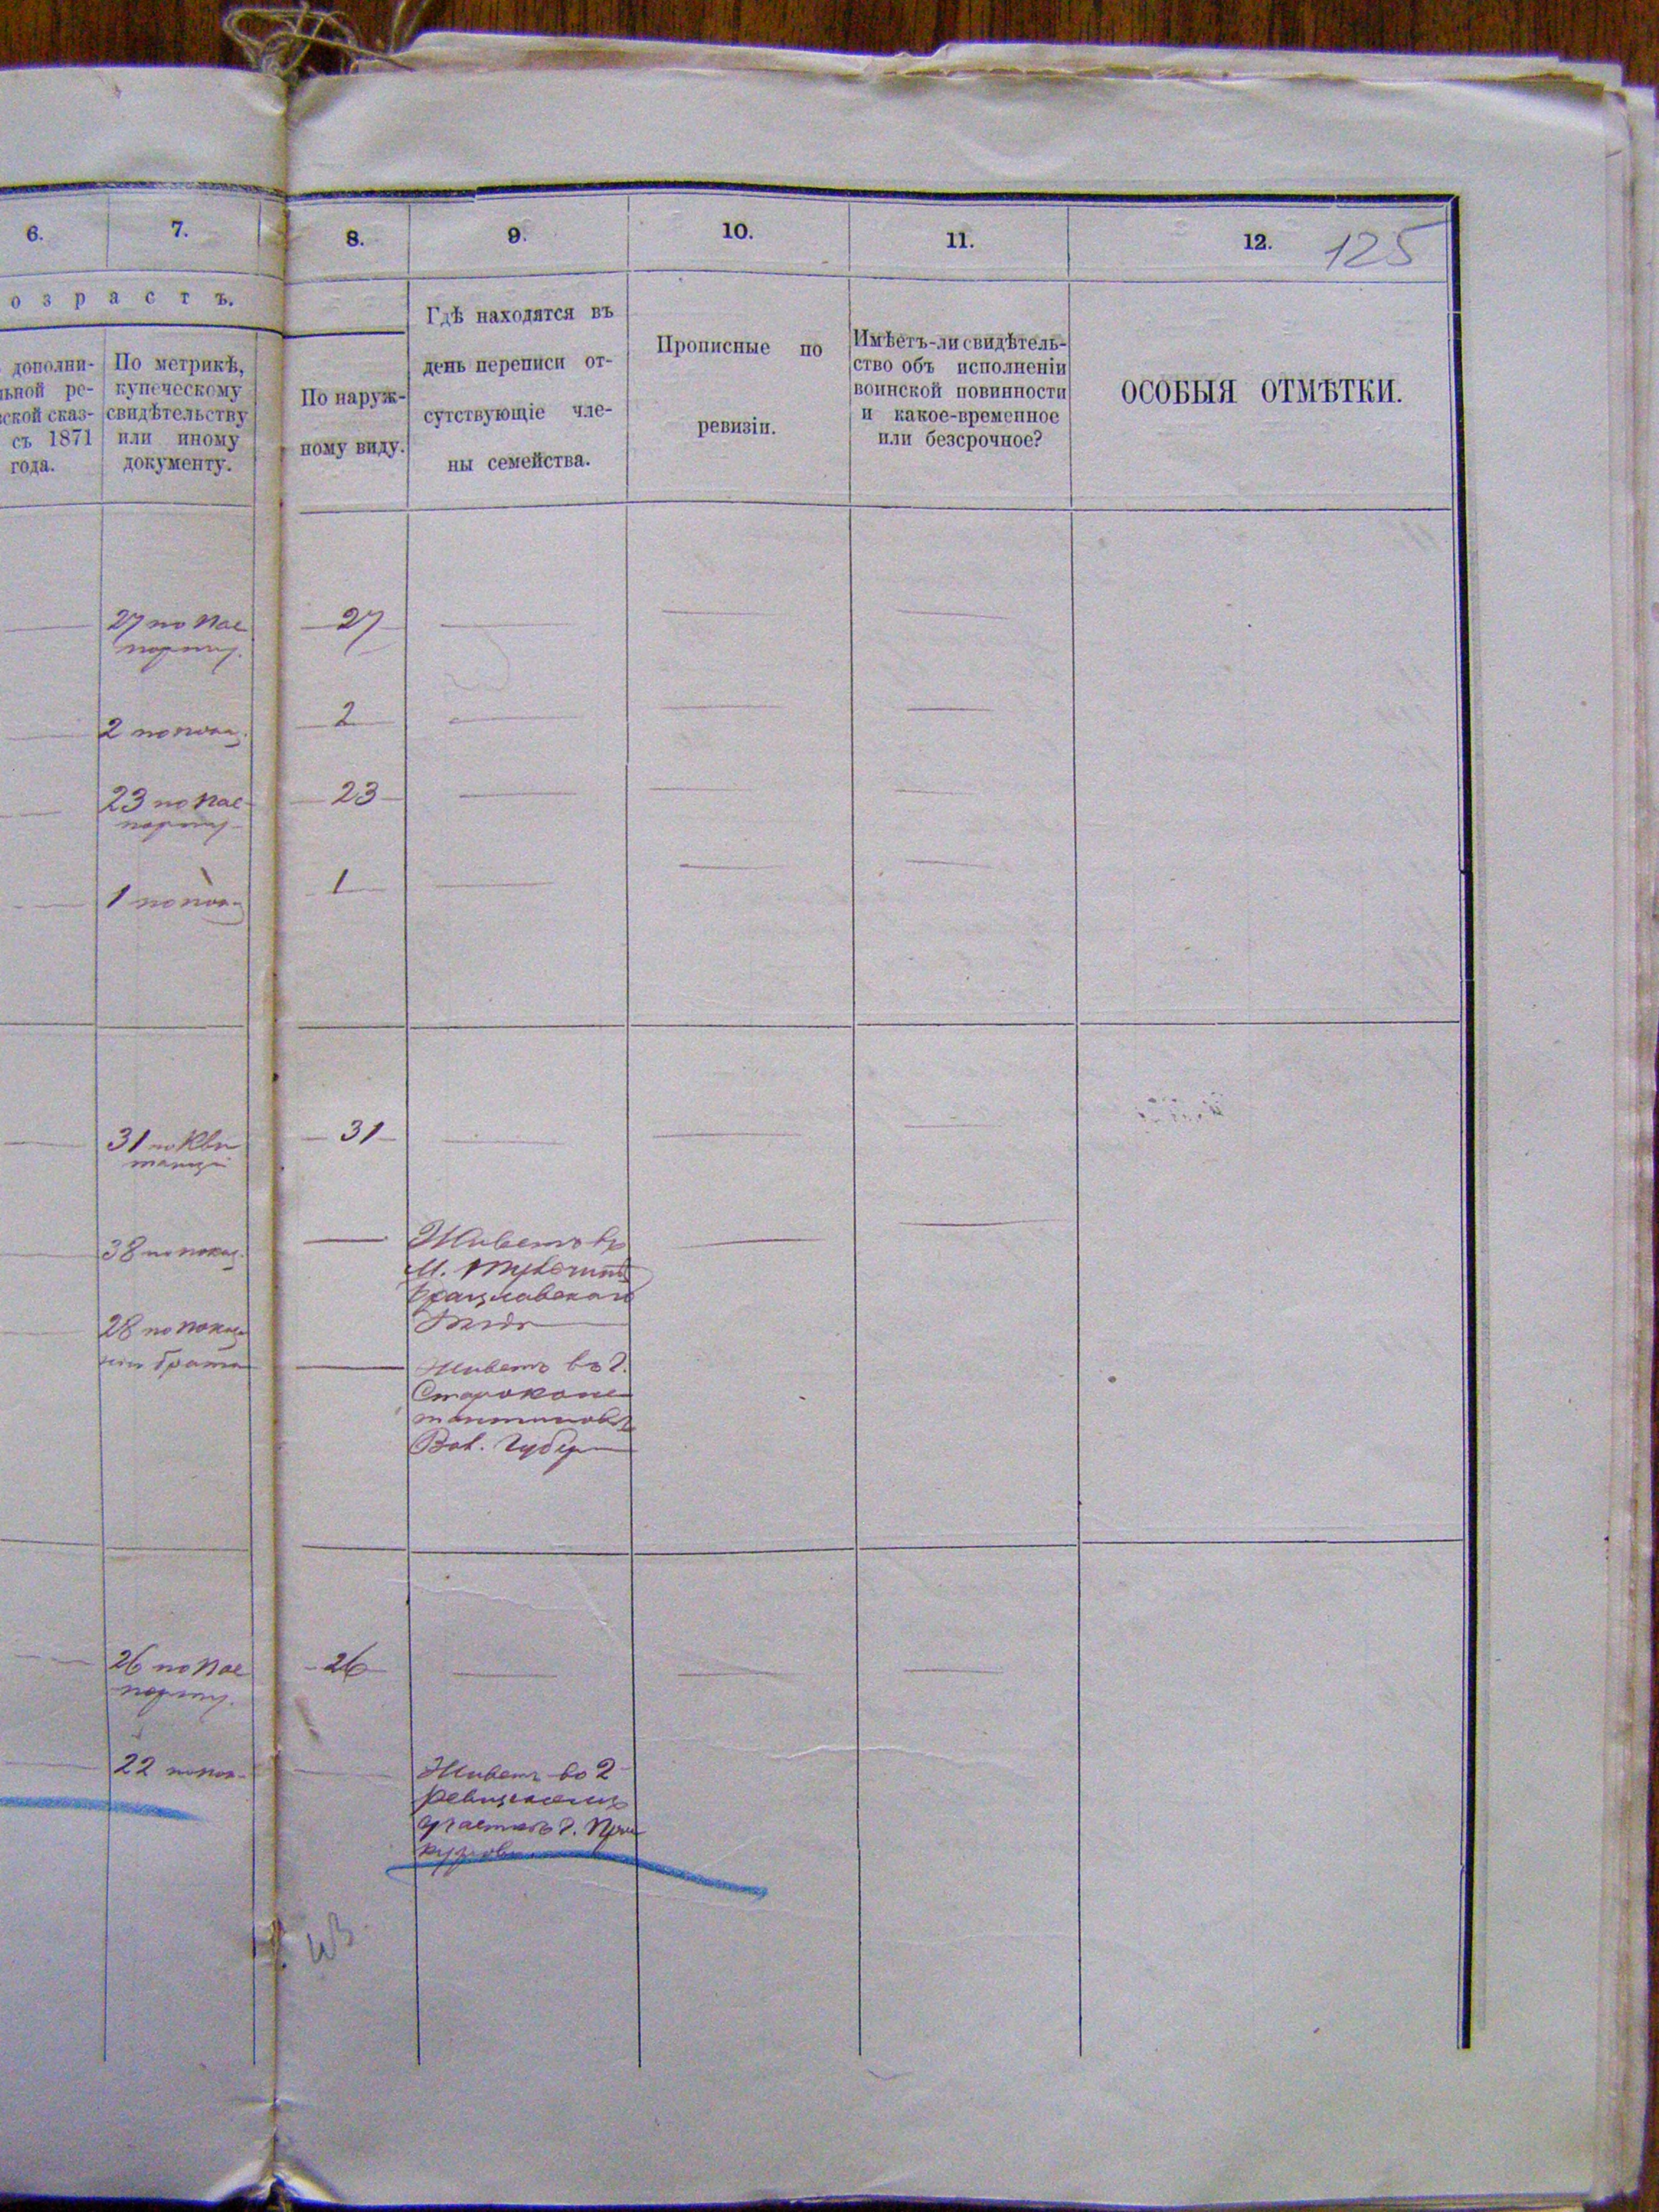 6. 7. 8. 9. 10. 11. 12. 125
о з р а с т ъ.
дополни-
ьной ре-
ской сказ-
съ 1871
года.
По метрикѣ,
купеческому
свидѣтельству
или иному
документу.
По наруж-
ному виду.
Гдѣ находятся въ
день переписи от-
сутствующіе чле-
ны семейства.
Прописные по
ревизіи.
Имѣетъ-ли свидѣтель-
ство объ исполненіи
воинской повинности
и какое-временное
или безсрочное?
ОСОБЫЯ ОТМѢТКИ.
27 по пас
порту.
27
2 по показ.
2
23 по пас-
порту
23
1 по показ
1
31 по кви
танціи
31
38 по показ.
Живетъ въ
М. Тульчинѣ
Брацлавскаго
28 по показа
нію брата
Живетъ въ г.
Староконс
тантиновѣ
Вол. Губерн
26 по пас
порту.
26
22 по пок-
Живетъ во 2
участкѣ г. Прос
курова.